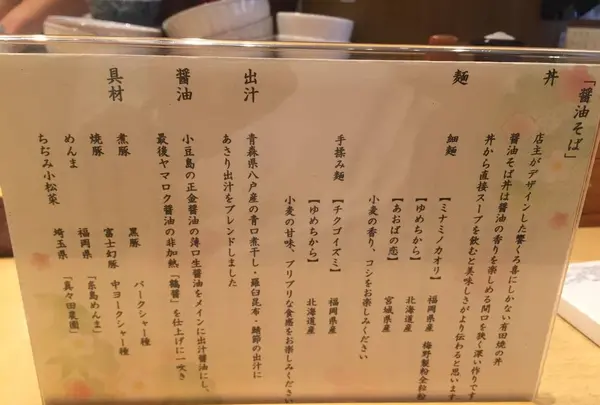 「醤油そば」
丼
店主がデザインした饗くろ喜にしかない有田焼の丼
醤油そば丼は醤油の香りを楽しめる間口を狭く深い作りです
丼から直接スープを飲むと美味しさがより伝わると思います
麺
細麺
【ミナミノカオリ】 福岡県産 梅野製粉全粒粉
【ゆめちから】 北海道産
【あおばの恋】 宮城県産
小麦の香り、コシをお楽しみください
手揉み麺
【チクゴイズミ】 福岡県産
【ゆめちから】 北海道産
小麦の甘味、プリプリな食感をお楽しみください
出汁
青森県八戸産の青口煮干し・羅臼昆布・鯖節の出汁に
あさり出汁をブレンドしました
醤油
小豆島の正金醤油の薄口生醤油をメインに出汁醤油にし、
最後ヤマロク醤油の非加熱「鶴醤」を仕上げに一吹き
具材
煮豚 黒豚 バークシャー種
焼豚 富士幻豚 中ヨークシャー種
めんま 福岡県 「糸島めんま」
ちぢみ小松菜 埼玉県 「真々田農園」